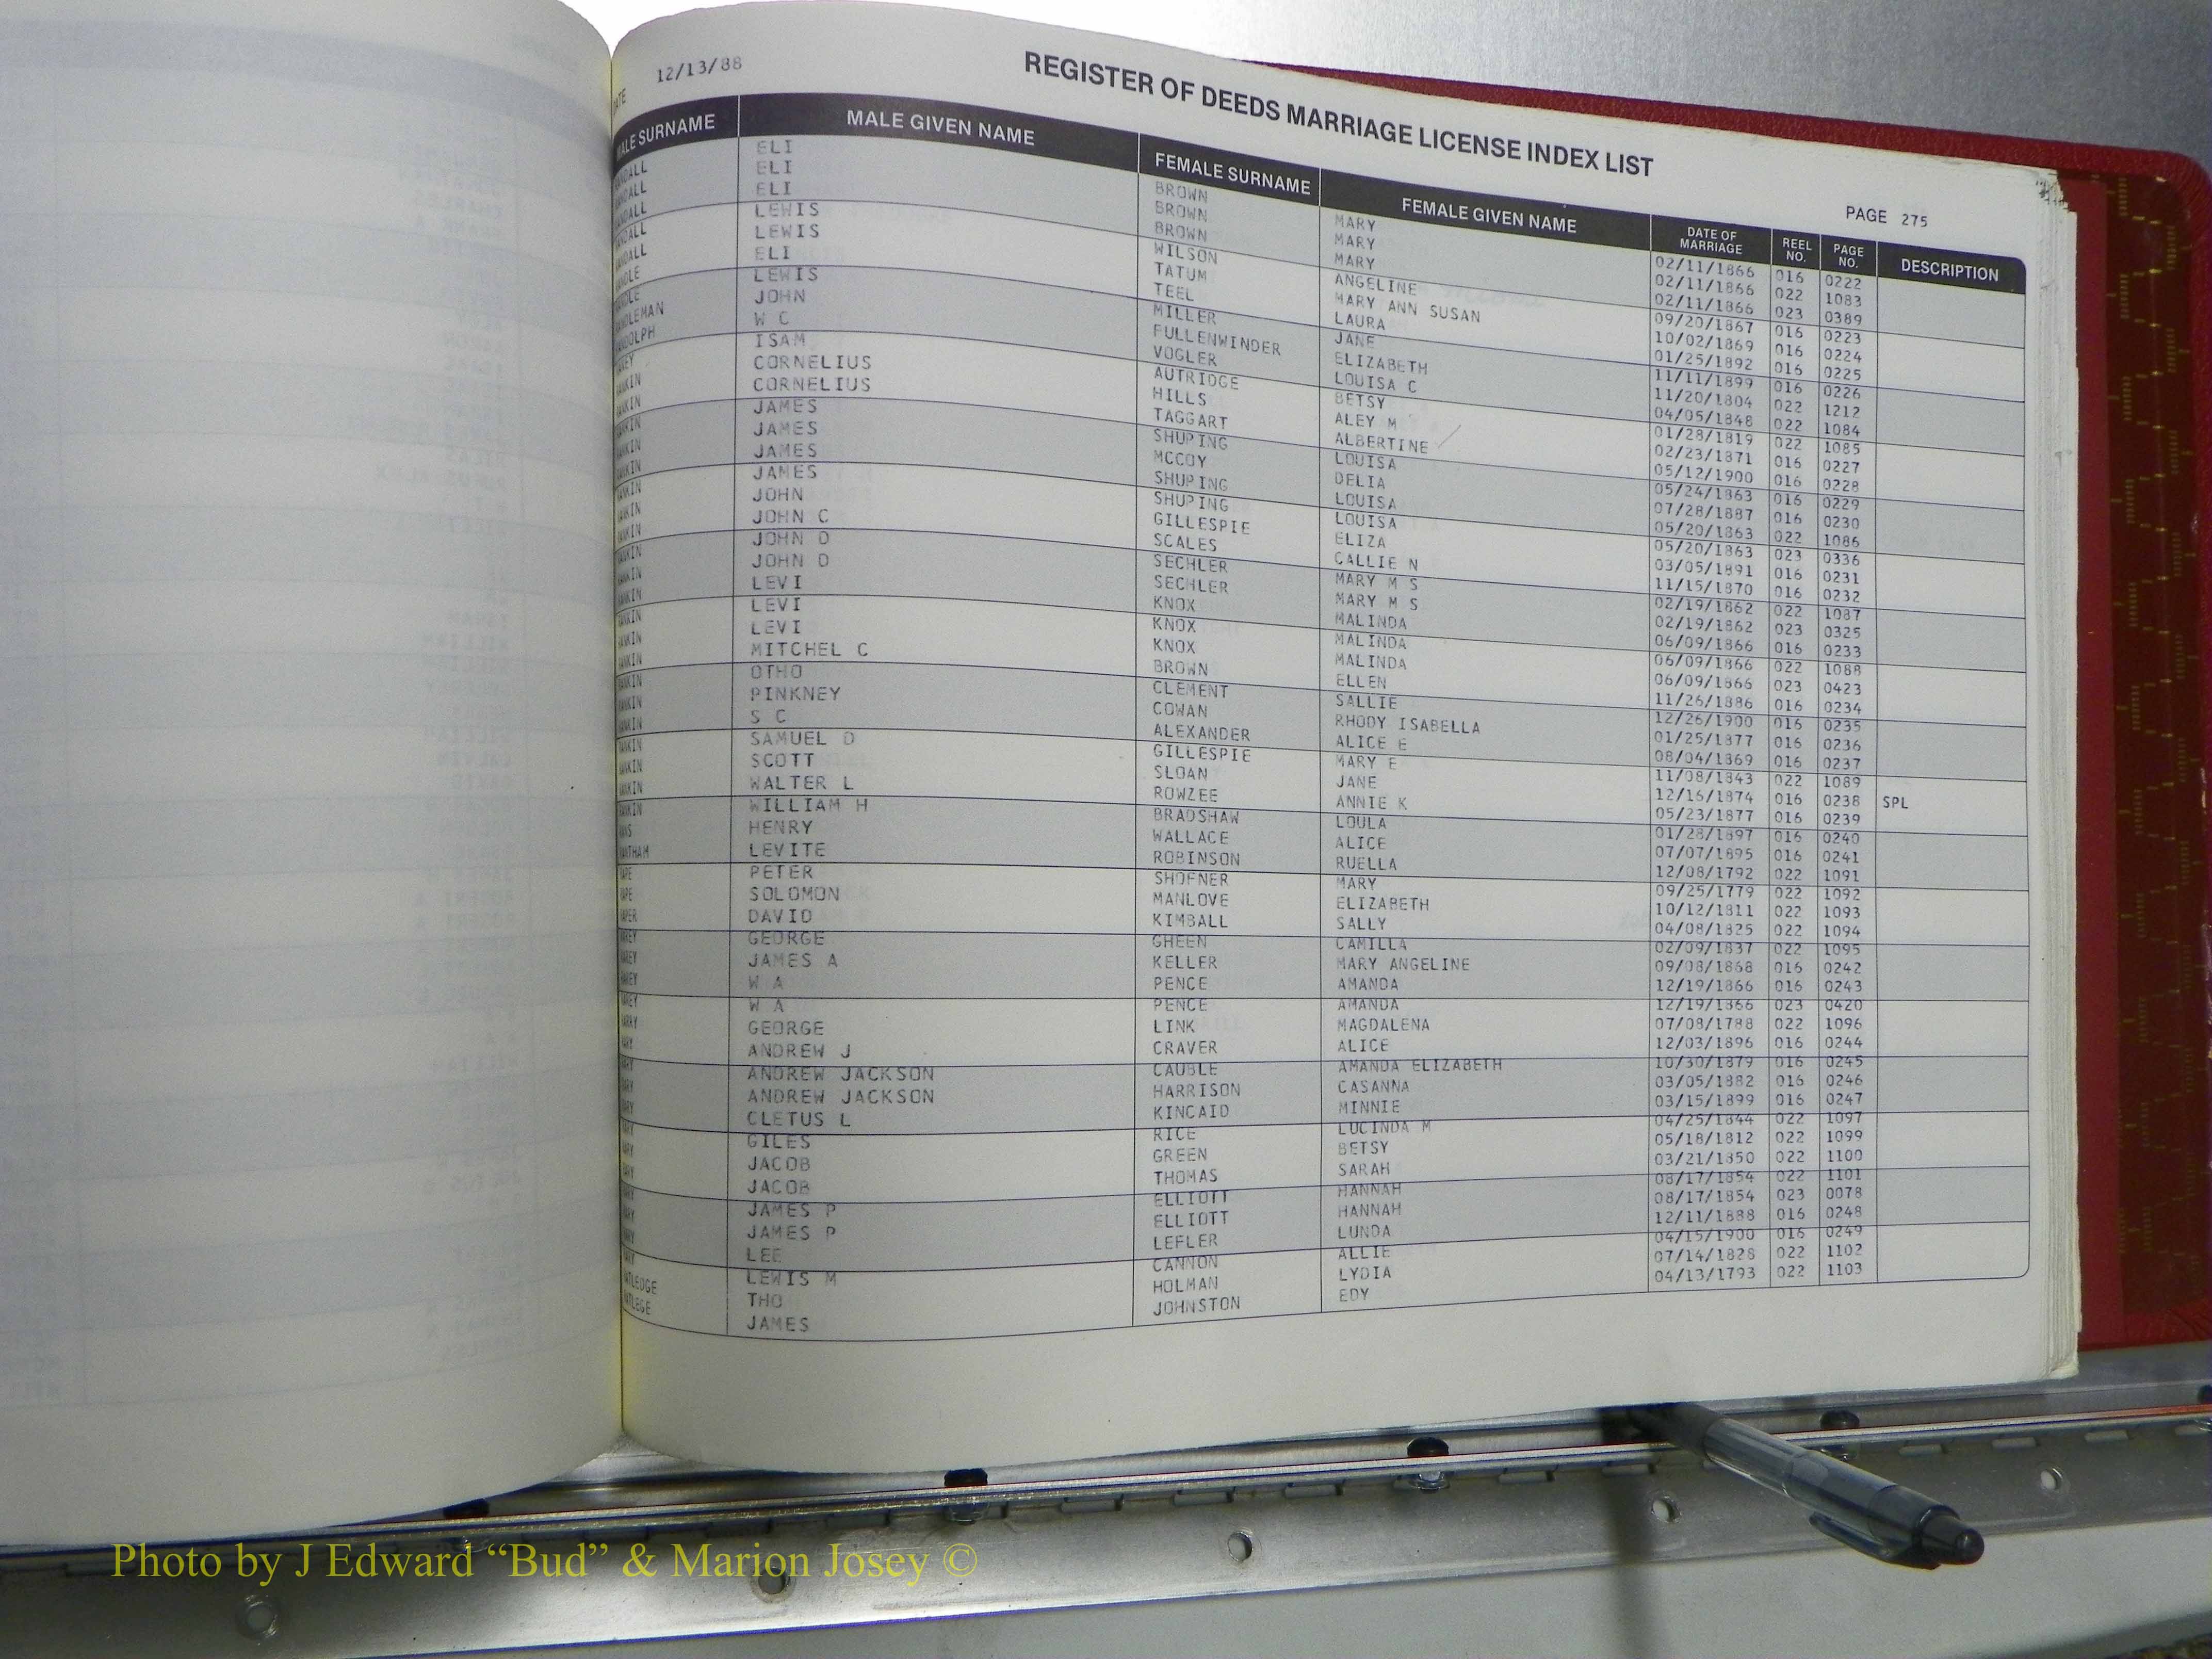 DATE 12/13/88
REGISTER OF DEEDS MARRIAGE LICENSE INDEX LIST
PAGE 275
MALE SURNAME MALE GIVEN NAME FEMALE SURNAME FEMALE GIVEN NAME DATE OF MARRIAGE REEL NO. PAGE NO. DESCRIPTION
ANDALL ELI BROWN MARY 02/11/1866 016 0222
ANDALL ELI BROWN MARY 02/11/1866 022 1083
ANDALL ELI BROWN MARY 02/11/1866 023 0389
ANDALL LEWIS WILSON ANGELINE 09/20/1867 016 0223
ANDALL LEWIS TATUM MARY ANN SUSAN 10/02/1869 016 0224
ANDLE ELI TEEL LAURA 01/25/1892 016 0225
ANDLE LEWIS MILLER JANE 11/11/1899 016 0226
ANDLEMAN JOHN FULLENWINDER ELIZABETH 11/20/1804 022 1212
ANDOLPH W C VOGLER LOUISA C 04/05/1848 022 1084
ANEY ISAM AUTRIDGE BETSY 01/28/1819 022 1085
ANKIN CORNELIUS HILLS ALEY M 02/23/1871 016 0227
ANKIN CORNELIUS TAGGART ALBERTINE 05/12/1900 016 0228
ANKIN JAMES SHUPING LOUISA 05/24/1863 016 0229
ANKIN JAMES MCCOY DELIA 07/28/1887 016 0230
ANKIN JAMES SHUPING LOUISA 05/20/1863 022 1086
ANKIN JAMES SHUPING LOUISA 05/20/1863 023 0336
ANKIN JOHN GILLESPIE ELIZA 03/05/1891 016 0231
ANKIN JOHN C SCALES CALLIE N 11/15/1870 016 0232
ANKIN JOHN D SECHLER MARY M S 02/19/1862 022 1087
ANKIN JOHN D SECHLER MARY M S 02/19/1862 023 0325
ANKIN LEVI KNOX MALINDA 06/09/1866 016 0233
ANKIN LEVI KNOX MALINDA 06/09/1866 022 1088
ANKIN LEVI KNOX MALINDA 06/09/1866 023 0423
ANKIN MITCHEL C BROWN ELLEN 11/26/1886 016 0234
ANKIN OTHO CLEMENT SALLIE 12/26/1900 016 0235
ANKIN PINKNEY COWAN RHODY ISABELLA 01/25/1877 016 0236
ANKIN S C ALEXANDER ALICE E 08/04/1869 016 0237
ANKIN SAMUEL D GILLESPIE MARY E 11/08/1843 022 1089
ANKIN SCOTT SLOAN JANE 12/16/1874 016 0238 SPL
ANKIN WALTER L ROWZEE ANNIE K 05/23/1877 016 0239
ANKIN WILLIAM H BRADSHAW LOULA 01/28/1897 016 0240
ANS HENRY WALLACE ALICE 07/07/1895 016 0241
ANTHAM LEVITE ROBINSON RUELLA 12/08/1792 022 1091
APE PETER SHOFNER MARY 09/25/1779 022 1092
APE SOLOMON MANLOVE ELIZABETH 10/12/1811 022 1093
APER DAVID KIMBALL SALLY 04/08/1825 022 1094
AREY GEORGE GHEEN CAMILLA 02/09/1837 022 1095
AREY JAMES A KELLER MARY ANGELINE 09/08/1868 016 0242
AREY W A PENCE AMANDA 12/19/1866 016 0243
AREY W A PENCE AMANDA 12/19/1866 023 0420
ARRY GEORGE LINK MAGDALENA 07/08/1788 022 1096
ARY ANDREW J CRAVER ALICE 12/03/1896 016 0244
ARY ANDREW JACKSON CAUBLE AMANDA ELIZABETH 10/30/1879 016 0245
ARY ANDREW JACKSON HARRISON CASANNA 03/05/1882 016 0246
ARY CLETUS L KINCAID MINNIE 03/15/1899 016 0247
ARY GILES RICE LUCINDA M 04/25/1844 022 1097
ARY JACOB GREEN BETSY 05/18/1812 022 1099
ARY JACOB THOMAS SARAH 03/21/1850 022 1100
ARY JAMES P ELLIOTT HANNAH 08/17/1854 022 1101
ARY JAMES P ELLIOTT HANNAH 08/17/1854 023 0078
ARY LEE LEFLER LUNDA 12/11/1888 016 0248
ARY LEWIS M CANNON ALLIE 04/15/1900 016 0249
ATLEDGE THO HOLMAN LYDIA 07/14/1828 022 1102
ATLEGE JAMES JOHNSTON EDY 04/13/1793 022 1103
Photo by J Edward “Bud” & Marion Josey ©